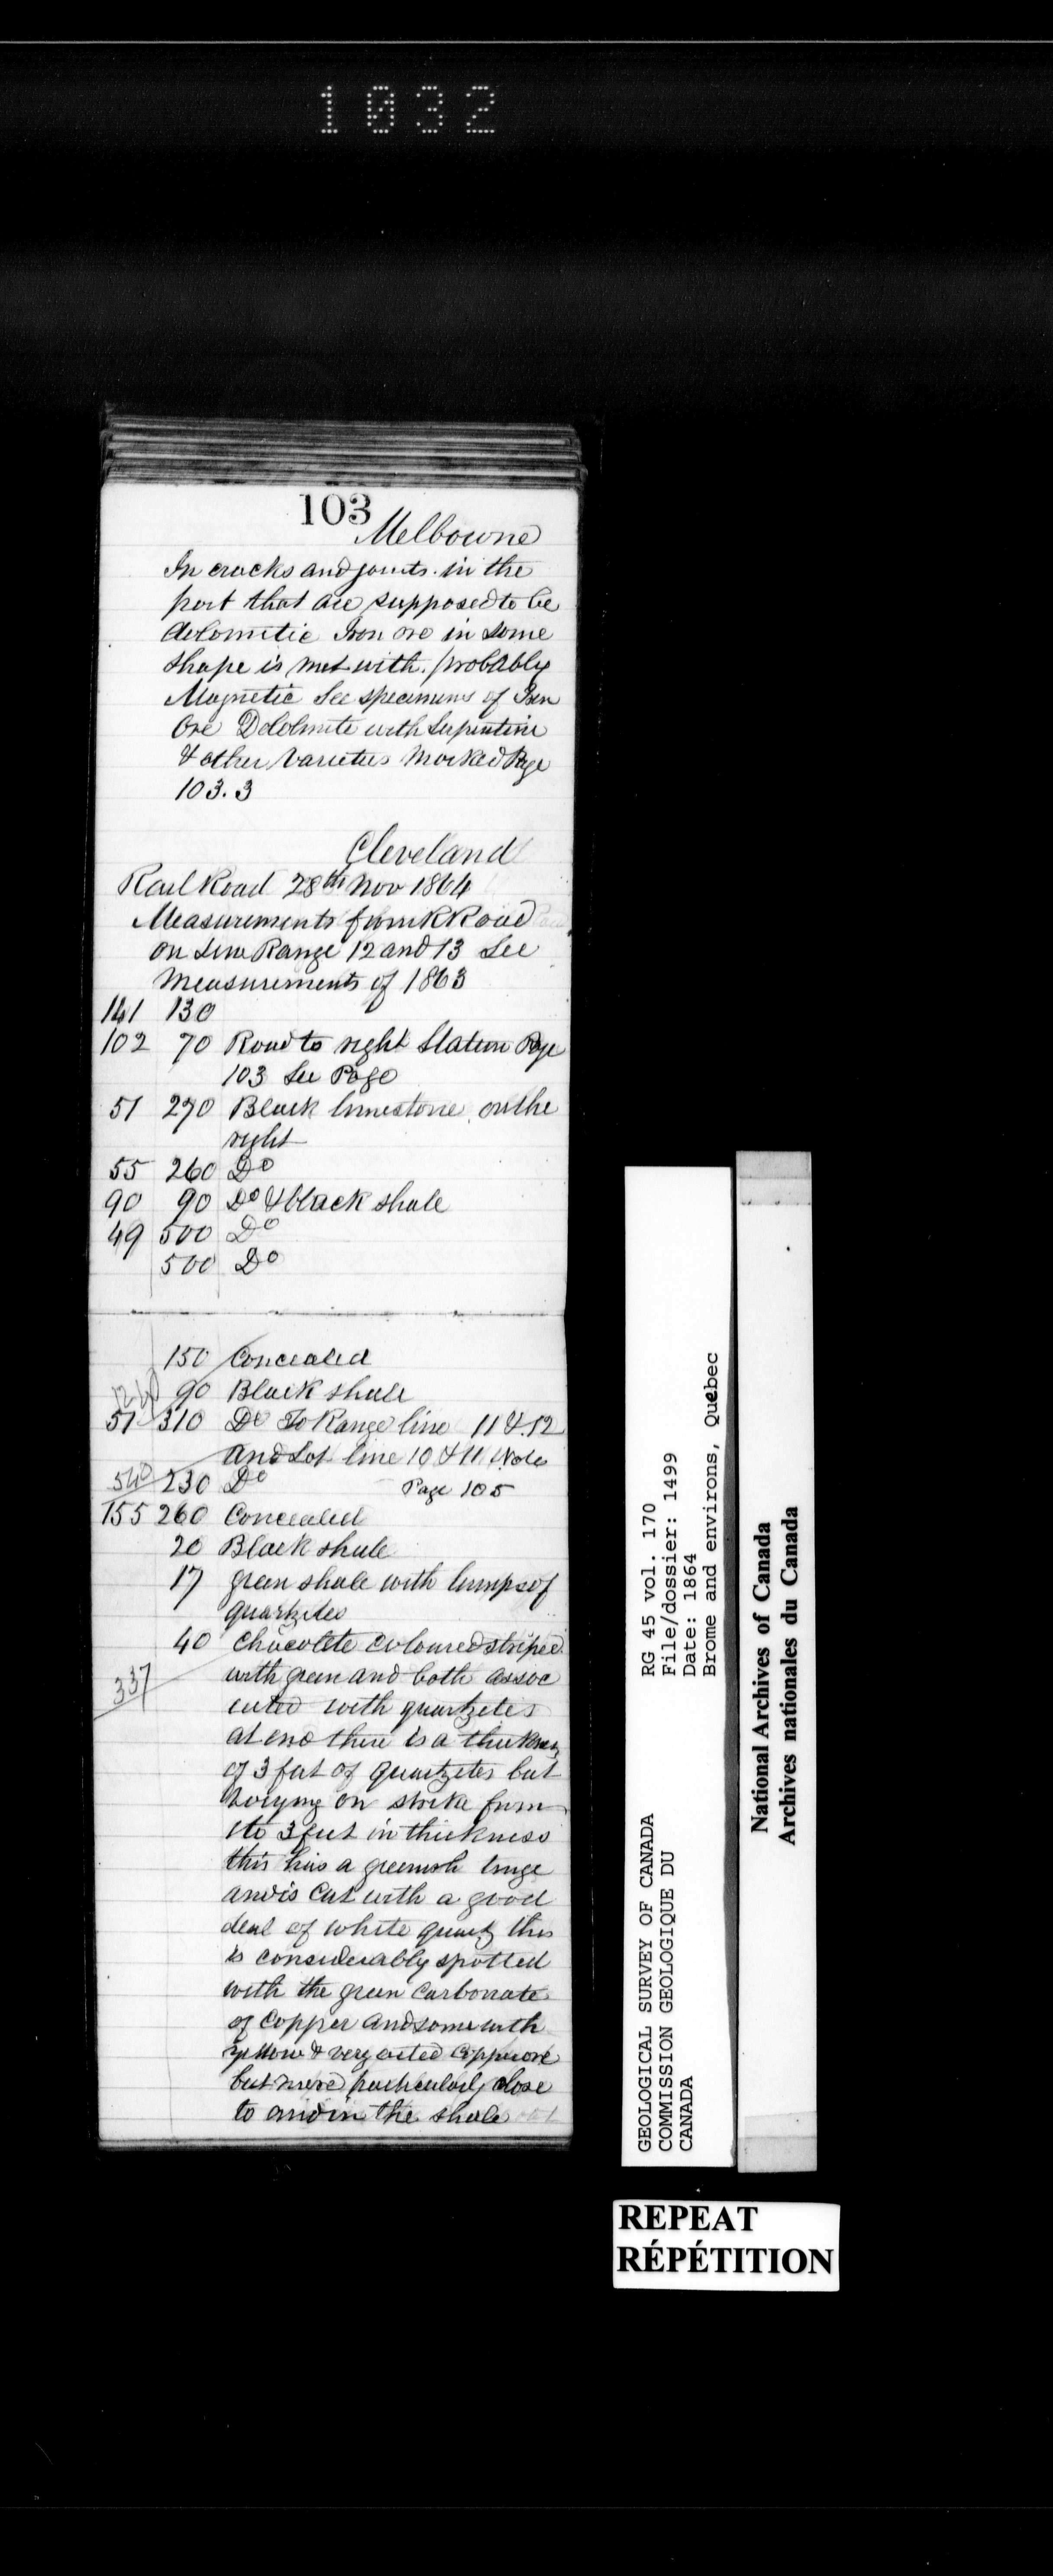 1032
103
Melbourne
In cracks and joints in the
part that are supposed to be
dolomitic Iron ore in some
shape is met with. probably
Magnetic See specimens of Iron
Ore Dolomite with Serpentine
& other Varieties Marked Page
103.3
Cleveland
Rail Road 28th Nov 1864
Measurements from R Road
on Line Range 12 and 13 See
Measurements of 1863
141 130
102 70 Road to right Station Page
103 See Page
51 270 Black limestone on the
right
55 260 Do
90 90 Do & black shale
49 500 Do
500 Do
150 Concealed
90 Black shale
51 310 Do To Range line 11 & 12
and Lot line 10 & 11 Note
540 230 Do Page 105
155 260 Concealed
20 Black shale
17 green shale with lumps of
quartzites
40 Chocolate coloured striped
337 with green and both assoc
iated with quartzites
at end there is a thickness
of 3 feet of quartzites but
varying on strike from
1 to 3 feet in thickness
this has a greenish tinge
and is cut with a good
deal of white quartz this
is considerably spotted
with the green carbonate
of copper and some with
yellow & copper ore
but more particularly close
to and in the shale
GEOLOGICAL SURVEY OF CANADA
COMMISSION GEOLOGIQUE DU
CANADA
RG 45 vol. 170
File/dossier: 1499
Date: 1864
Brome and environs, Quebec
National Archives of Canada
Archives nationales du Canada
REPEAT
RÉPÉTITION